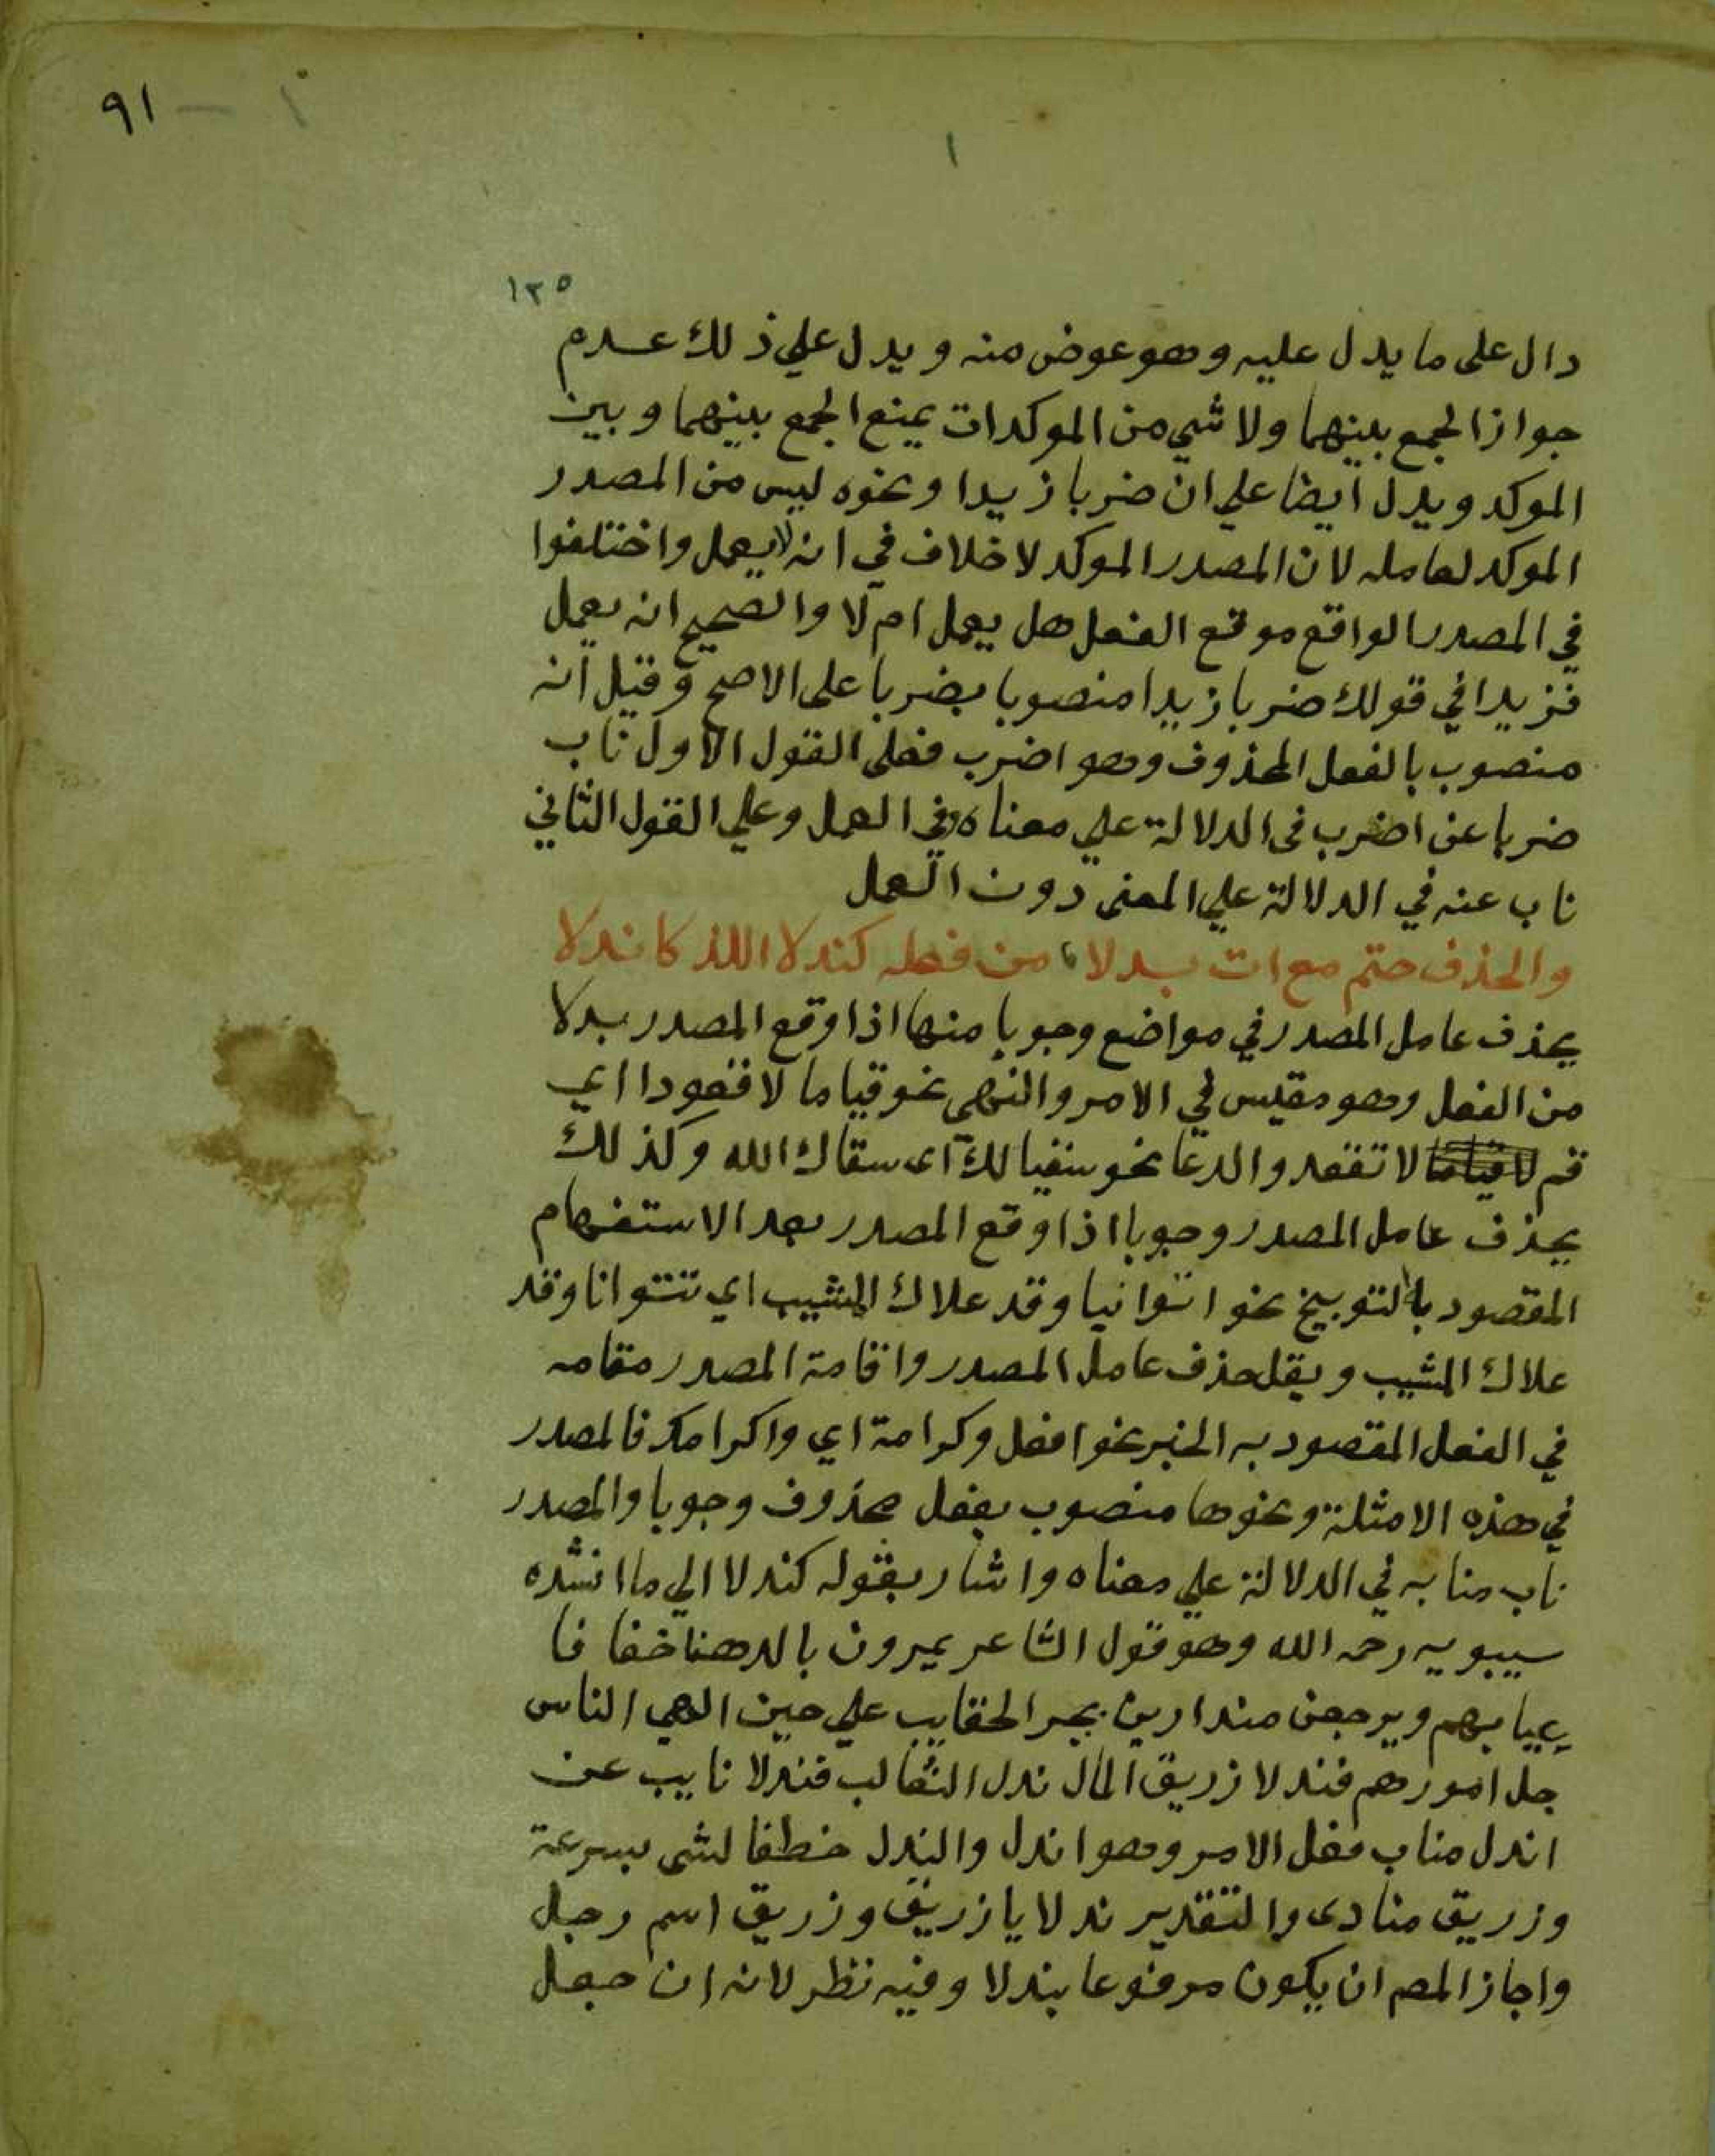 ٩١ — ١
١
١٢٥
دال على ما يدل عليه وهو عوض منه ويدل علي ذلك عدم
جواز الجمع بينهما ولا شي من الموكدات يمنع الجمع بينهما وبين
الموكد ويدل ايضا علي ان ضربا زيدا ونحوه ليس من المصدر
الموكد لعامله لان المصدر الموكد لا خلاف في انه لا يعمل واختلفوا
في المصدر الواقع موقع الفعل هل يعمل ام لا والصحيح انه يعمل
فزيدا في قولك ضربا زيدا منصوبا بضربا على الاصح وقيل انه
منصوب بالفعل المحذوف وهو اضرب فعلى القول الاول ناب
ضربا عن اضرب في الدلالة علي معناه وفي العمل وعلي القول الثاني
ناب عنه في الدلالة علي المعنى دون العمل
والحذف حتم مع ات بدلا من فعله كندلا اللذ كاندلا
يحذف عامل المصدر في مواضع وجوبا منها اذا وقع المصدر بدلا
من الفعل وهو مقيس في الامر والنهي نحو قياما لا قعودا اي
قم لا قياما لا تقعد والدعا نحو سقيا لك اى سقاك الله وكذلك
يحذف عامل المصدر وجوبا اذا وقع المصدر بعد الاستفهام
المقصود به التوبيخ نحو اتوانيا وقد علاك المشيب اي تتوانا وقد
علاك المشيب ويقل حذف عامل المصدر واقامة المصدر مقامه
في الفعل المقصود به الخبر نحو افعل وكرامة اي واكرامك فالمصدر
في هذه الامثلة ونحوها منصوب بفعل محذوف وجوبا والمصدر
ناب منابه في الدلالة علي معناه واشار بقوله كندلا الي ما انشده
سيبويه رحمه الله وهو قول الشاعر يمرون بالدهنا خفافا
عيابهم ويرجعن من دارين بجر الحقايب علي حين الهي الناس
جل امورهم فندلا زريق المال ندل الثعالب فندلا نايب عن
اندل مناب فعل الامر وهو اندل والندل خطفا لشى بسرعة
وزريق منادى والتقدير ندلا يا زريق وزريق اسم رجل
واجاز المصم ان يكون مرفوعا بندلا وفيه نظر لانه ان جعل